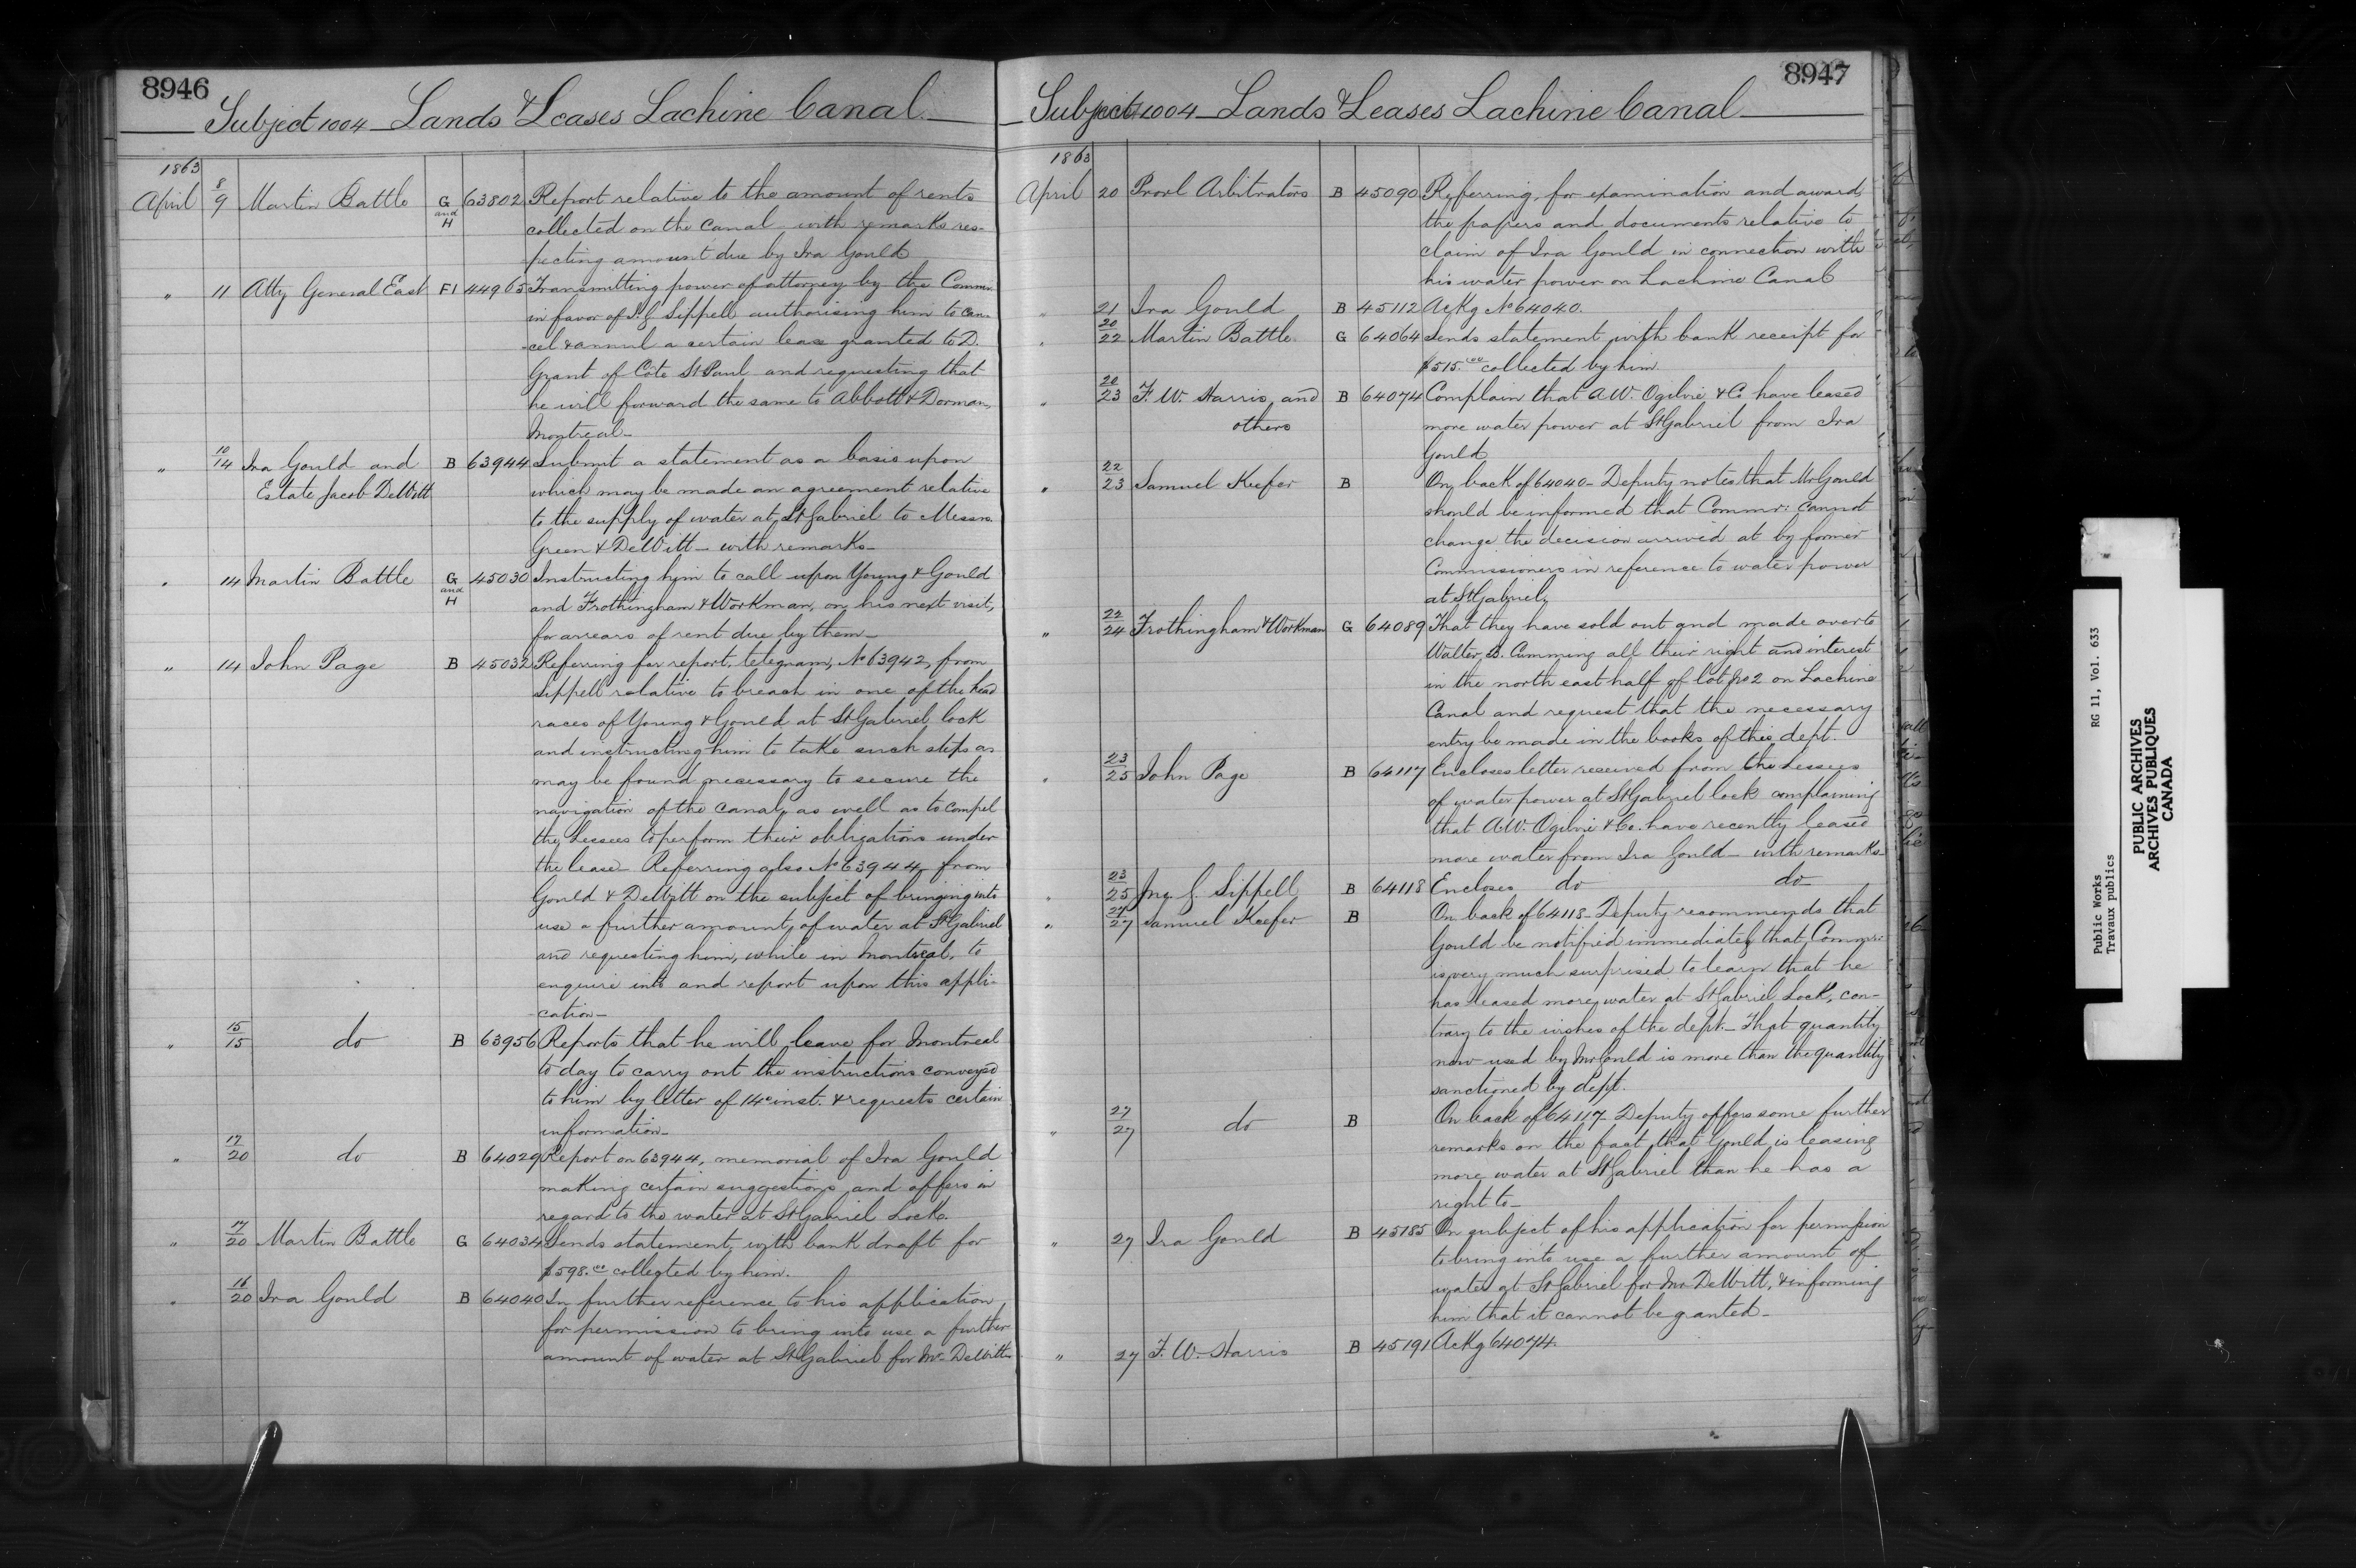 8946
Subject 1004 Lands & Leases Lachine Canal
1863
April 8/9 Martin Battle G and H 63802 Report relative to the amount of rents
collected on the Canal with remarks res-
pecting amount due by Ira Gould
" 11 Atty General East F1 44965 Transmitting power of attorney by the Commr.
in favor of J. G Sippell authorising him to can-
cel & annul a certain lease granted to D.
Grant of Côte St Paul and requesting that
he will forward the same to Abbott & Dorman,
Montreal-
" 10/14 Ira Gould and B 63944 Submit a statement as a basis upon
Estate Jacob DeWitt which may be made an agreement relative
to the supply of water at St Gabriel to Messrs
Green & DeWitt - with remarks-
" 14 Martin Battle G and H 45030 Instructing him to call upon Young & Gould
and Frothingham & Workman, on his next visit,
for arrears of rent due by them-
" 14 John Page B 45032 Referring for report, telegram, No 63942, from
Sippell relative to breach in one of the head
races of Young & Gould at St Gabriel lock
and instructing him to take such steps as
may be found necessary to secure the
navigation of the Canal, as well as to compel
the Lessees to perform their obligations under
the lease. Referring also No 63944, from
Gould & DeWitt on the subject of bringing into
use a further amount of water at St Gabriel
and requesting him, while in Montreal, to
enquire into and report upon this appli-
cation-
" 15/15 do B 63956 Reports that he will leave for Montreal
to day to carry out the instructions conveyed
to him by letter of 14th inst. & requests certain
information-
" 17/20 do B 64029 Report on 63944, memorial of Ira Gould
making certain suggestions and offers in
regard to the water at St Gabriel Lock.
" 17/20 Martin Battle G 64034 Sends statement, with bank draft for
$598.00 collected by him.
" 16/20 Ira Gould B 64040 In further reference to his application
for permission to bring into use a further
amount of water at St Gabriel for Mr. DeWitt-
8947
Subject 1004 Lands & Leases Lachine Canal
1863
April 20 Provl Arbitrators B 45090 Referring, for examination and award,
the papers and documents relative to
claim of Ira Gould in connection with
his water power on Lachine Canal
" 21 Ira Gould B 45112 Ackg No 64040.
" 20/22 Martin Battle G 64064 Sends statement with bank receipt for
$515.00 collected by him.
" 20/23 F. W. Harris, and B 64074 Complain that A. W. Ogilvie & Co have leased
others more water power at St Gabriel from Ira
Gould
" 22/23 Samuel Keefer B On back of 64040- Deputy notes that Mr Gould
should be informed that Commr: cannot
change the decision arrived at by former
Commissioners in reference to water power
at St Gabriel,
" 22/24 Frothingham & Workman G 64089 That they have sold out and made over to
Walter B. Cumming all their right and interest
in the north east half of lot No 2 on Lachine
Canal and request that the necessary
entry be made in the books of this dept.
" 23/25 John Page B 64117 Encloses letter received from the Lessees
of water power at St Gabriel lock complaining
that A. W. Ogilvie & Co. have recently leased
more water from Ira Gould- with remarks-
" 23/25 Jno. G Sippell B 64118 Encloses do do-
" 27/27 Samuel Keefer B On back of 64118- Deputy recommends that
Gould be notified immediately that Commr:
is very much surprised to learn that he
has leased more water at St Gabriel Lock, con-
trary to the wishes of the dept.- That quantity
now used by Mr Gould is more than the quantity
sanctioned by dept.
" 27/27 do B On back of 64117- Deputy offers some further
remarks on the fact that Gould is leasing
more water at St Gabriel than he has a
right to-
" 27 Ira Gould B 45185 On subject of his application for permission
to bring into use a further amount of
water at St Gabriel for Mr. DeWitt, & informing
him that it cannot be granted-
" 27 F. W. Harris B 45191 Ackg 64074.
Public Works RG 11, Vol. 633
Travaux publics
PUBLIC ARCHIVES
ARCHIVES PUBLIQUES
CANADA